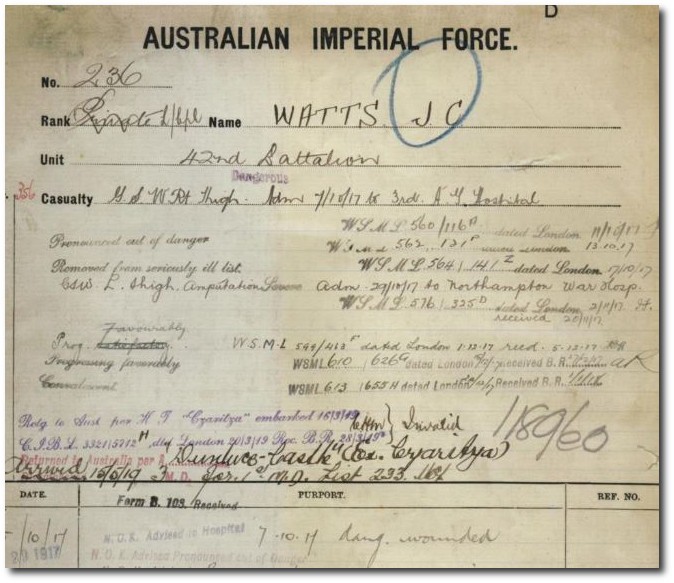 D
AUSTRALIAN IMPERIAL FORCE.
No. 236
Rank Private L/Cpl Name WATTS. J. C.
Unit 42nd Battalion
Dangerous
356
Casualty G.S.W Rt Thigh. Adm 7/10/17 to 3rd. A. G. Hospital
W.S.M.L 560/116 dated London 11/10/17
Pronounced out of danger W.S.M.L 562. 131 London 13.10.17
Removed from seriously ill list. W.S.M.L. 564/141 Z dated London 17/10/17
GSW. L. Thigh. Amputation Severe Adm. 29/10/17 to Northampton War Hosp.
W.S.M.L. 576/325 D dated London 2/11/17
received 20/11/17
Favourably
Prog. satisfactory W.S.M.L 599/413 dated London 1.12.17 recd. 5.12.17
Progressing favorably WSML 610 6269 dated London Received B.R.
Convalescent WSML 613 1655H dated London Received B.R.
Retg to Aust per H.T "Czaritza" embarked 15/3/19 Invalid
C.I.B.L. 3321/5712 H dtd London 20/3/19 Rec. B.R. 28/3/19
118960
Returned to Australia per "Dunluce Castle" (Ex. Czaritza)
15/5/19 3 M.D. for 1st M.D. List 233.
DATE. Form B. 103. Received PURPORT. REF. NO.
/10/17 N.O.K. Advised to Hospital 7.10.17 dang. wounded
1917 N.O.K. Advised Pronounced out of Danger